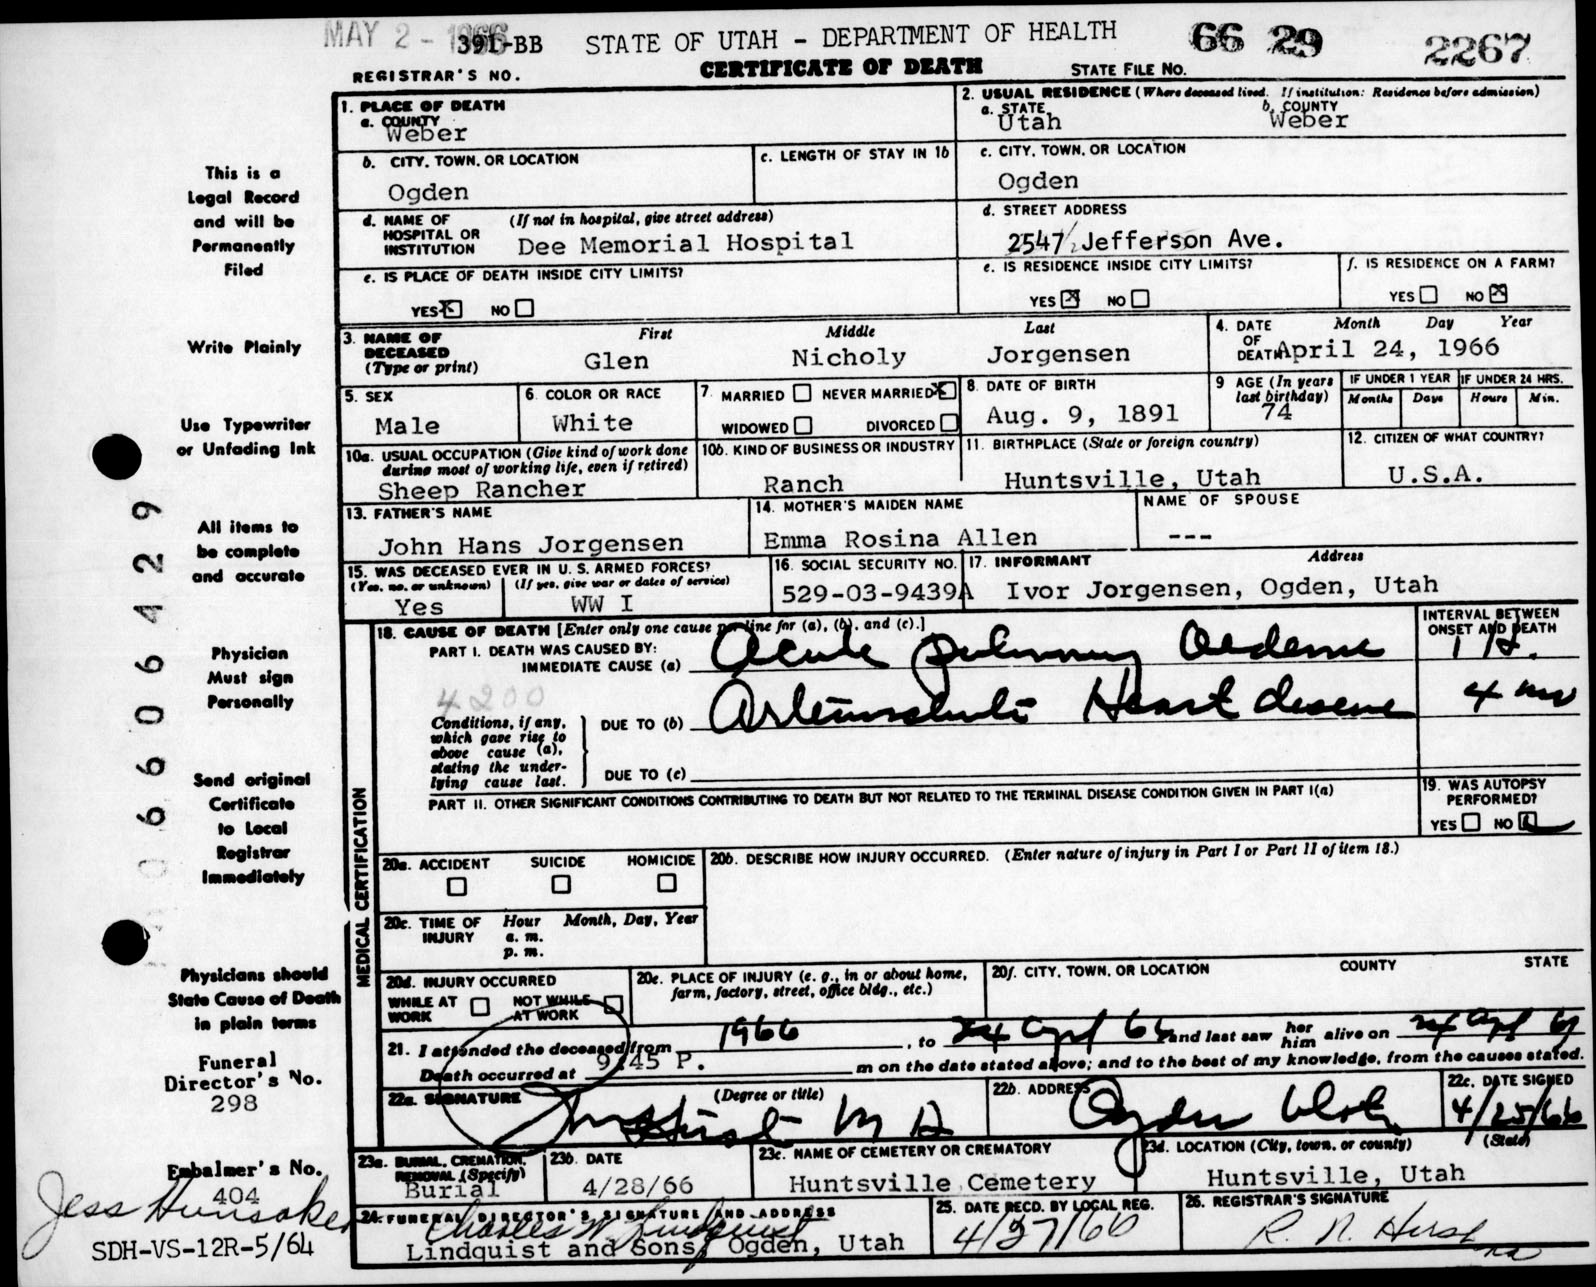 MAY 2 - 1966
391-BB STATE OF UTAH - DEPARTMENT OF HEALTH 66 29 2267
REGISTRAR'S NO. CERTIFICATE OF DEATH STATE FILE NO.
1. PLACE OF DEATH
a. COUNTY
Weber
2. USUAL RESIDENCE (Where deceased lived. If institution: Residence before admission)
a. STATE b. COUNTY
Utah Weber
b. CITY, TOWN, OR LOCATION c. LENGTH OF STAY IN 1b
Ogden
c. CITY, TOWN, OR LOCATION
Ogden
d. NAME OF HOSPITAL OR INSTITUTION (If not in hospital, give street address)
Dee Memorial Hospital
d. STREET ADDRESS
2547½ Jefferson Ave.
e. IS PLACE OF DEATH INSIDE CITY LIMITS?
YES NO
e. IS RESIDENCE INSIDE CITY LIMITS?
YES NO
f. IS RESIDENCE ON A FARM?
YES NO
3. NAME OF DECEASED (Type or print) First Middle Last
Glen Nicholy Jorgensen
4. DATE OF DEATH Month Day Year
April 24, 1966
5. SEX
Male
6. COLOR OR RACE
White
7. MARRIED NEVER MARRIED
WIDOWED DIVORCED
8. DATE OF BIRTH
Aug. 9, 1891
9 AGE (In years last birthday)
74
IF UNDER 1 YEAR IF UNDER 24 HRS.
Months Days Hours Min.
10a. USUAL OCCUPATION (Give kind of work done during most of working life, even if retired)
Sheep Rancher
10b. KIND OF BUSINESS OR INDUSTRY
Ranch
11. BIRTHPLACE (State or foreign country)
Huntsville, Utah
12. CITIZEN OF WHAT COUNTRY?
U.S.A.
13. FATHER'S NAME
John Hans Jorgensen
14. MOTHER'S MAIDEN NAME
Emma Rosina Allen
NAME OF SPOUSE
---
15. WAS DECEASED EVER IN U. S. ARMED FORCES?
(Yes, no, or unknown) (If yes, give war or dates of service)
Yes WW I
16. SOCIAL SECURITY NO.
529-03-9439A
17. INFORMANT Address
Ivor Jorgensen, Ogden, Utah
MEDICAL CERTIFICATION
18. CAUSE OF DEATH [Enter only one cause per line for (a), (b), and (c).]
INTERVAL BETWEEN ONSET AND DEATH
PART I. DEATH WAS CAUSED BY:
IMMEDIATE CAUSE (a) Acute pulmonary Oedema
4200
Conditions, if any, which gave rise to above cause (a), stating the underlying cause last.
DUE TO (b) Heart disease
DUE TO (c)
PART II. OTHER SIGNIFICANT CONDITIONS CONTRIBUTING TO DEATH BUT NOT RELATED TO THE TERMINAL DISEASE CONDITION GIVEN IN PART I(a)
19. WAS AUTOPSY PERFORMED?
YES NO
20a. ACCIDENT SUICIDE HOMICIDE
20b. DESCRIBE HOW INJURY OCCURRED. (Enter nature of injury in Part I or Part II of item 18.)
20c. TIME OF INJURY Hour Month, Day, Year
a. m.
p. m.
20d. INJURY OCCURRED
WHILE AT WORK NOT WHILE AT WORK
20e. PLACE OF INJURY (e. g., in or about home, farm, factory, street, office bldg., etc.)
20f. CITY, TOWN, OR LOCATION COUNTY STATE
21. I attended the deceased from 1966, to 24 April 66 and last saw her him alive on 24 Apl 66
Death occurred at 9:45 P. m on the date stated above; and to the best of my knowledge, from the causes stated.
22a. SIGNATURE (Degree or title)
M D
22b. ADDRESS
Ogden Utah
22c. DATE SIGNED
4/25/66
23a. BURIAL, CREMATION, REMOVAL (Specify)
Burial
23b. DATE
4/28/66
23c. NAME OF CEMETERY OR CREMATORY
Huntsville Cemetery
23d. LOCATION (City, town, or county) (State)
Huntsville, Utah
24. FUNERAL DIRECTOR'S SIGNATURE AND ADDRESS
Charles W. Lindquist
Lindquist and Sons, Ogden, Utah
25. DATE RECD. BY LOCAL REG.
4/27/66
26. REGISTRAR'S SIGNATURE
R. N. Hirst
This is a
Legal Record
and will be
Permanently
Filed
Write Plainly
Use Typewriter
or Unfading Ink
All items to
be complete
and accurate
Physician
Must sign
Personally
Send original
Certificate
to Local
Registrar
Immediately
Physicians should
State Cause of Death
in plain terms
Funeral
Director's No.
298
Embalmer's No.
404
Jess Hunsaker
SDH-VS-12R-5/64